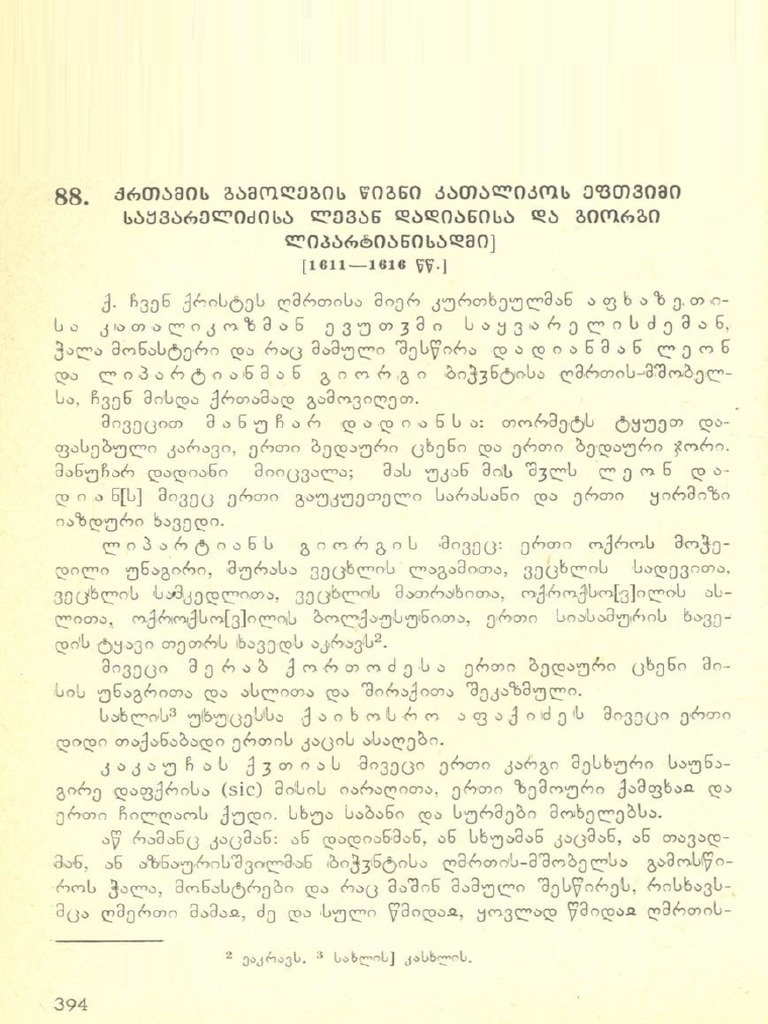 88. ქრთამის გამოღების წიგნი კათალიკოს ეფთვიმი
საყვარელიძისა ლევან დადიანისა და გიორგი
ლიპარტიანისადმი]
[1611—1616 წწ.]
ქ. ჩვენ ქრისტეს ღმრთისა მიერ კურთხეულმან აფხაზეთი-
სა კათალიკოზმან ევუთჳმი საყვარელისძემან,
ჭალა მონასტერი და რაც მამული შესწირა დადიანმან ლეონ
და ლიპარტიანმან გიორგი ბიჭჳნტისა ღმრთის-მშობელ-
სა, ჩვენ მისდა ქრთამად გამოვიღეთ.
მივეცით მანუჩარ დადიანსა: თორმეტს ტყუეთ და-
ფასებული კარავი, ერთი ბედაური ცხენი და ერთი ბედაური ჯორი.
მანუჩარ დადიანი მიიცვალა; მას უკან მის შჳლს ლეონ და-
დიან[ს] მივეც ერთი გაუკუეთელი სარასანი და ერთი ყირმიზი
იაზდური ხავედი.
ლიპარტიანს გიორგის მივეც: ერთი ოქროს მოჭე-
დილი უნაგირი, მურასა ვეცხლის ლაგამითა, ვეცხლის სადევითა,
ვეცხლის სამკედლითა, ვეცხლის მათრახითა, ოქროქსო[ვ]ილის ას-
ლითა, ოქროქსო[ვ]ილის ბოლქაუსუნითა, ერთი სიასამურის ხავე-
დის ტყავი თეთრს ხავედს აკრავს².
მივეცი მერაბ ქორთოძესა ერთი ბედაური ცხენი მი-
სის უნაგრითა და ასლითა და შირაქითა შეკაზმული.
სახლის³ უხუცესსა ქაიხოსრო აფაქიძეს მივეცი ერთი
დიდი თაქანაბადი ერთის კაცის ასაღები.
კაკაუჩას ქჳთიას მივეცი ერთი კარგი მესხური საუნა-
გირე დაფქრისა (sic) მისის იარაღითა, ერთი ზემოური ქამფხაჲ და
ერთი ჩილღაოს ქუდი. სხუა საბანი და სურმები მოხელებსა.
აწ რამანც კაცმან: ან დადიანმან, ან სხუამან კაცმან, ან თავად-
მან, ან აზნაურისშვილმან ბიჭჳნტისა ღმრთის-მშობელსა გამოსწი-
როს ჭალა, მონასტრები და რაც მაშინ მამული შესწირეს, რისხავს-
მცა ღმერთი მამაჲ, ძე და სული წმიდაჲ, ყოვლად წმიდაჲ ღმრთის-
² ეაკრავს. ³ სახლის] კასხლის.
394